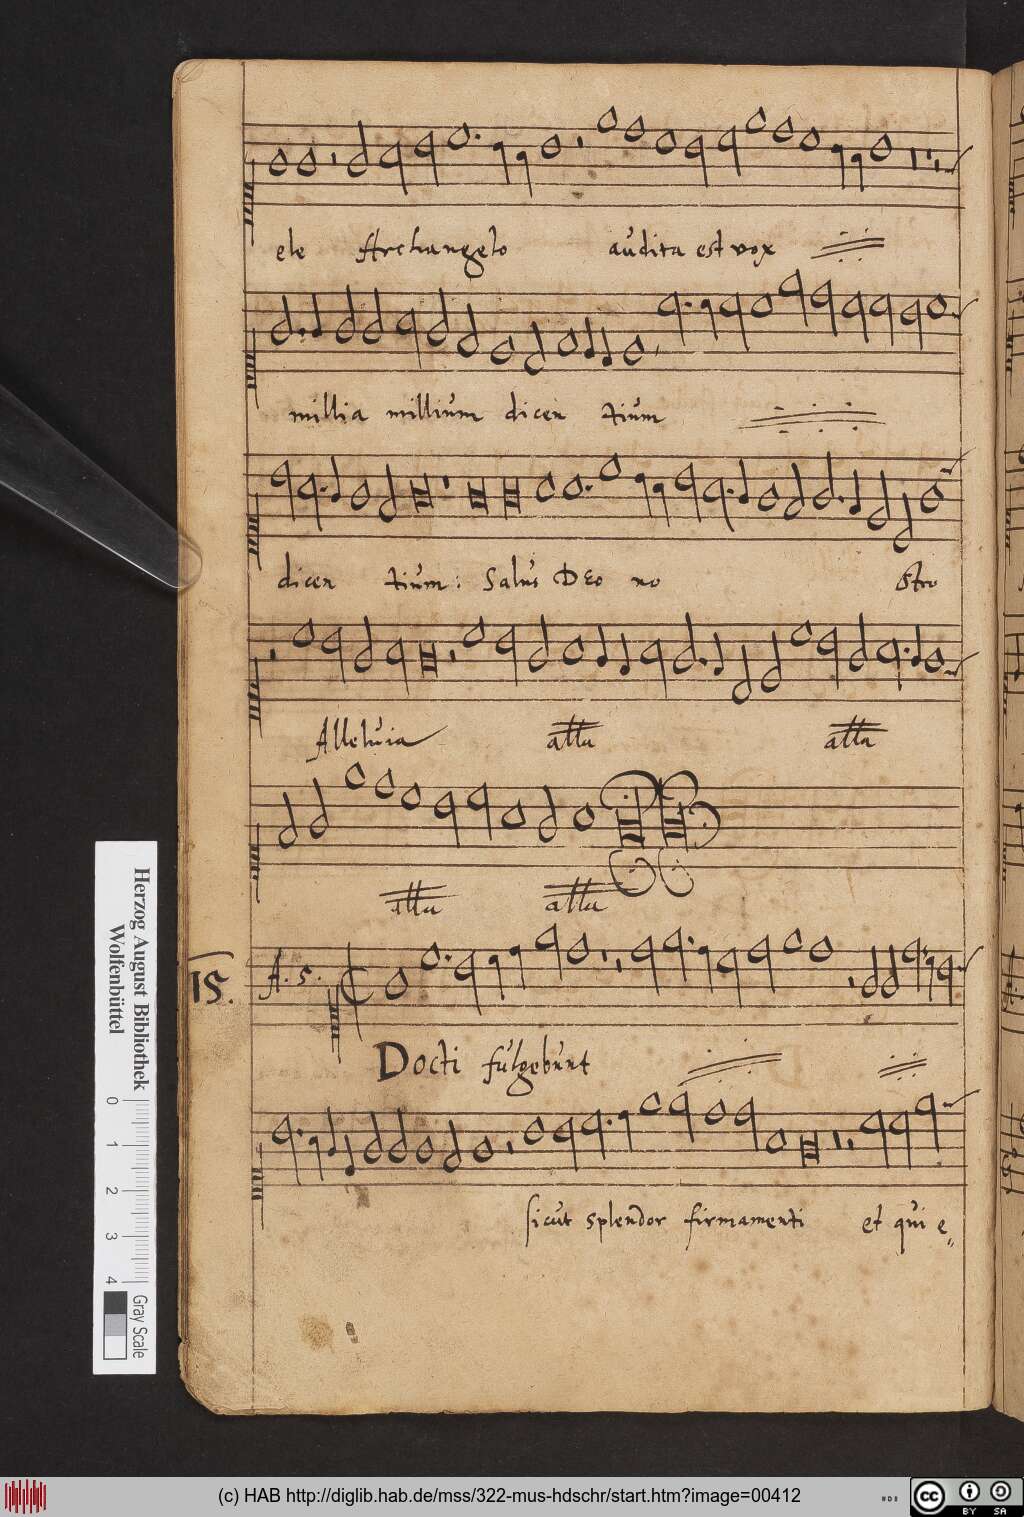 ele Archangelo audita est vox
millia millium dicen tium
dicen tium: Salus DEo no stro
Alleluia alla alla
alla alla
15. A. 5.
Docti fulgebunt
sicut splendor firmamenti et qui e
Herzog August Bibliothek
Wolfenbüttel
0 1 2 3 4
Gray Scale
(c) HAB http://diglib.hab.de/mss/322-mus-hdschr/start.htm?image=00412
cc BY SA